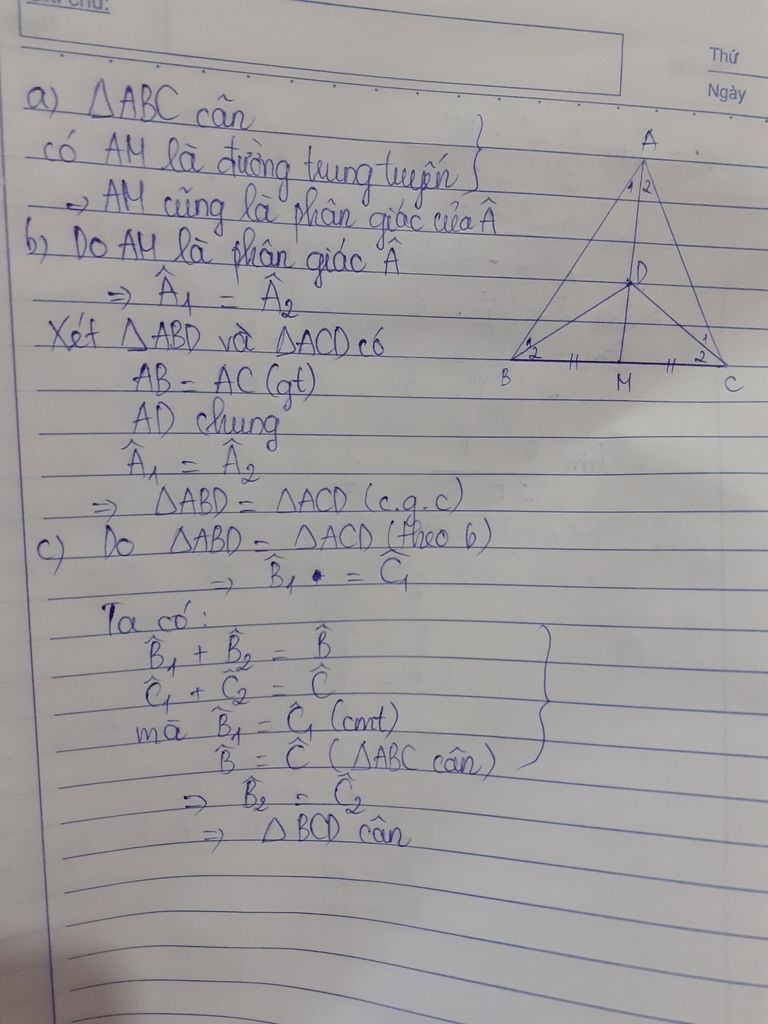 Thứ
Ngày
a) ΔABC cân
có AM là đường trung tuyến
⇒ AM cũng là phân giác của Â
b) Do AM là phân giác Â
⇒ Â₁ = Â₂
Xét ΔABD và ΔACD có
AB = AC (gt)
AD chung
Â₁ = Â₂
⇒ ΔABD = ΔACD (c.g.c)
c) Do ΔABD = ΔACD (theo b)
⇒ B̂₁ = Ĉ₁
Ta có:
B̂₁ + B̂₂ = B̂
Ĉ₁ + Ĉ₂ = Ĉ
mà B̂₁ = Ĉ₁ (cmt)
B̂ = Ĉ (ΔABC cân)
⇒ B̂₂ = Ĉ₂
⇒ ΔBCD cân
A
1 2
D
1 2
1 2
B
M
C